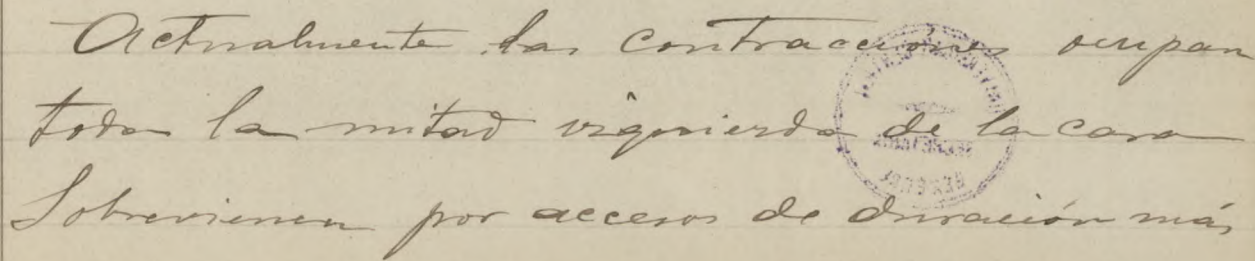 Actualmente las contracciones ocupan
toda la mitad izquierda de la cara
Sobrevienen por accesos de duración más